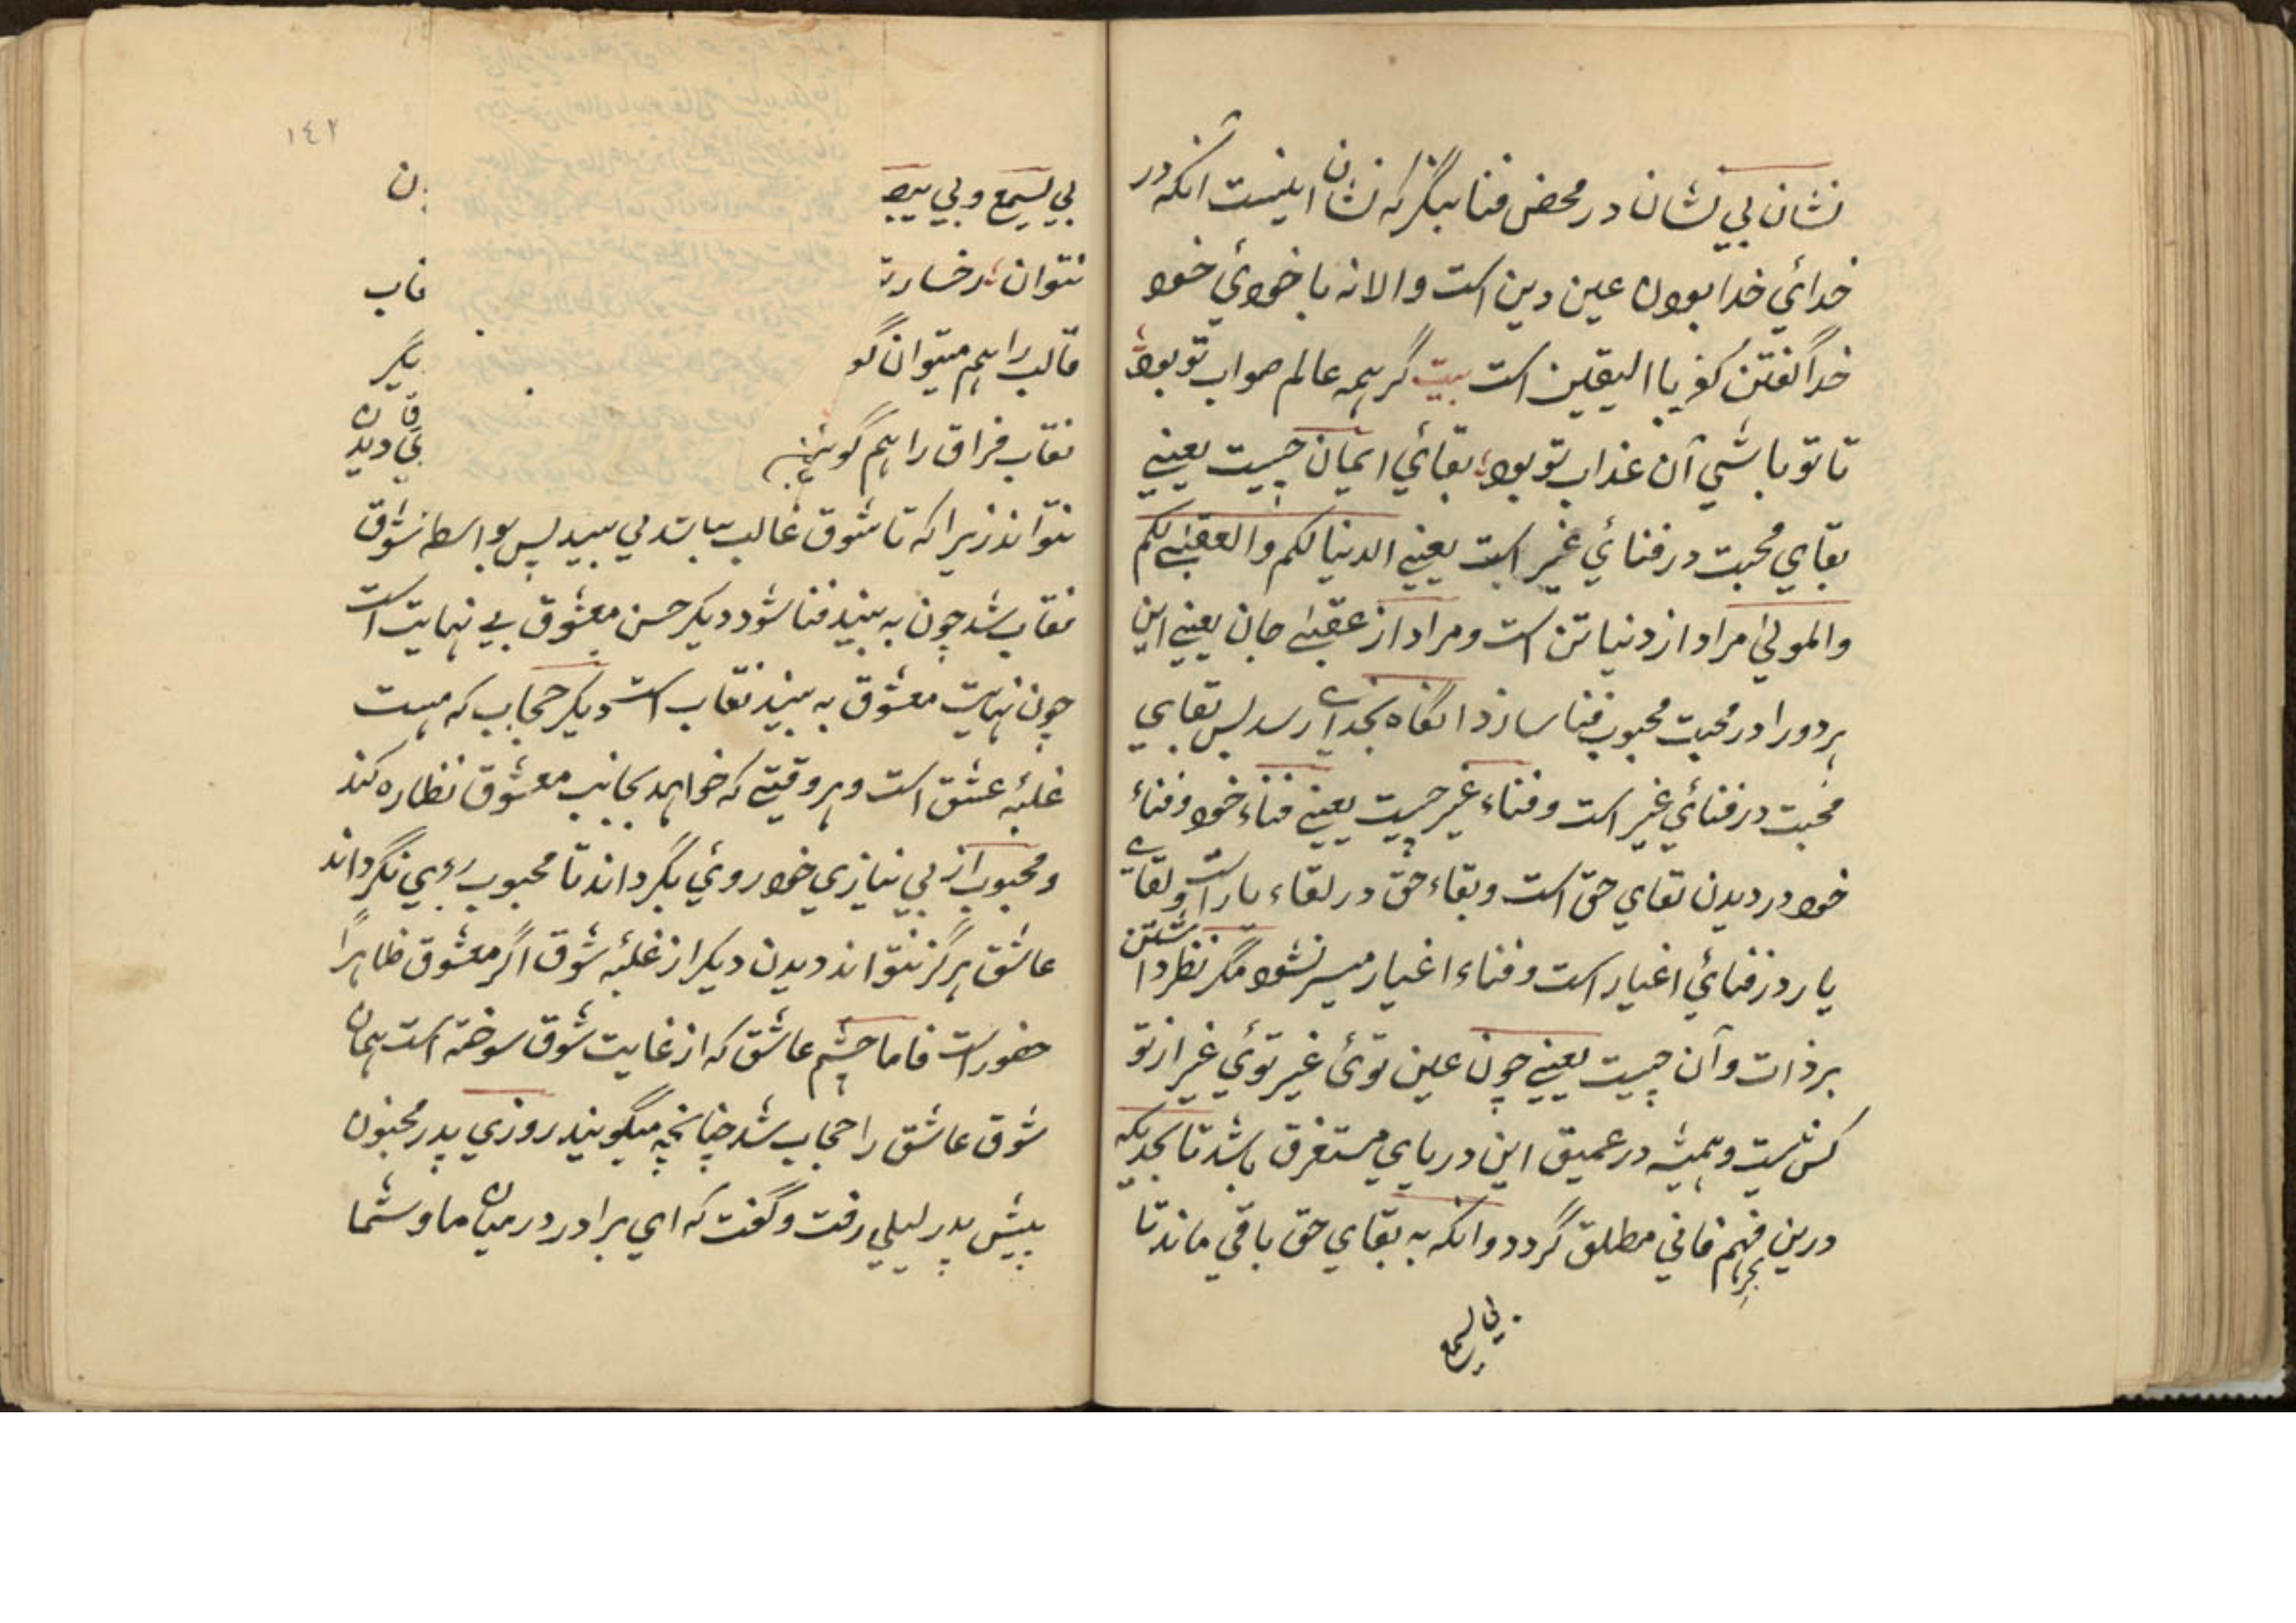 نشان بي نشان در محض فنا بنگر كه نشان اينست انكه در
خدائي خدا بودن عين دين است والا نه با خودي خود
خدا گفتن كفر با اليقين است بيت گر همه عالم صواب تو بود
تا تو باشي آن عذاب تو بود بقائي ايمان چيست يعني
بقاي محبت در فنائي غير است يعني الدنيا لكم والعقبى لكم
والمولى مراد از دنيا تن است و مراد از عقبى جان يعني اين
هر دو را در محبت محبوب فنا سازد انگاه بخداي رسد پس بقاي
محبت در فنائي غير است و فناء غير چيست يعني فناء خود و فناء
خود در ديدن بقاي حق است و بقاء حق در لقاء يار است و لقاي
يار در فنائي اغيار است و فناء اغيار ميسر نشود مگر نظر داشتن
بر ذات و آن چيست يعني چون عين توئ غير توئي غير از تو
كس نيست و هميشه در عميق اين درياي مستغرق باشد تا بحديكه
درين بحر فهم فاني مطلق گردد و انكه به بقاي حق باقي ماند تا
بي يسمع
١٤٢
بي يسمع و بي يبص ن
نتوان رخسار قاب
قالب را هم ميتوان گو يگر
نقاب فراق را هم گويند ديد
نتواند زيرا كه تا شوق غالب نباشد نمي بيند پس بواسطه شوق
نقاب شد چون به بيند فنا شود ديگر حسن معشوق بي نهايت است
چون نهايت معشوق به بيند نقاب است ديگر حجاب كه هست
غلبه عشق است و هر وقتي كه خواهد بجانب معشوق نظاره كند
و محبوب از بي نيازي خود روئي بگرداند تا محبوب روي نگرداند
عاشق هرگز نتواند ديدن ديگر از غلبه شوق اگر معشوق ظاهراً
حضور است فاما چشم عاشق كه از غايت شوق سوخته است همان
شوق عاشق را حجاب شد چنانچه ميگويند روزي پدر مجنون
پيش پدر ليلي رفت و گفت كه اي برادر در ميان ما و شما